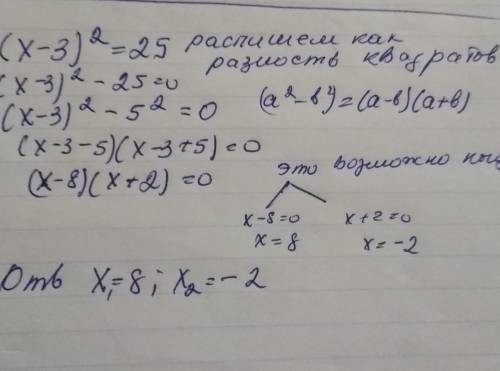 (x-3)² = 25 распишем как
разность квадратов
(x-3)² - 25 = 0
(a² - b²) = (a-b)(a+b)
(x-3)² - 5² = 0
(x-3-5)(x-3+5) = 0
это возможно
(x-8)(x+2) = 0
x-8=0 x+2=0
x=8 x=-2
Отв x₁=8; x₂=-2